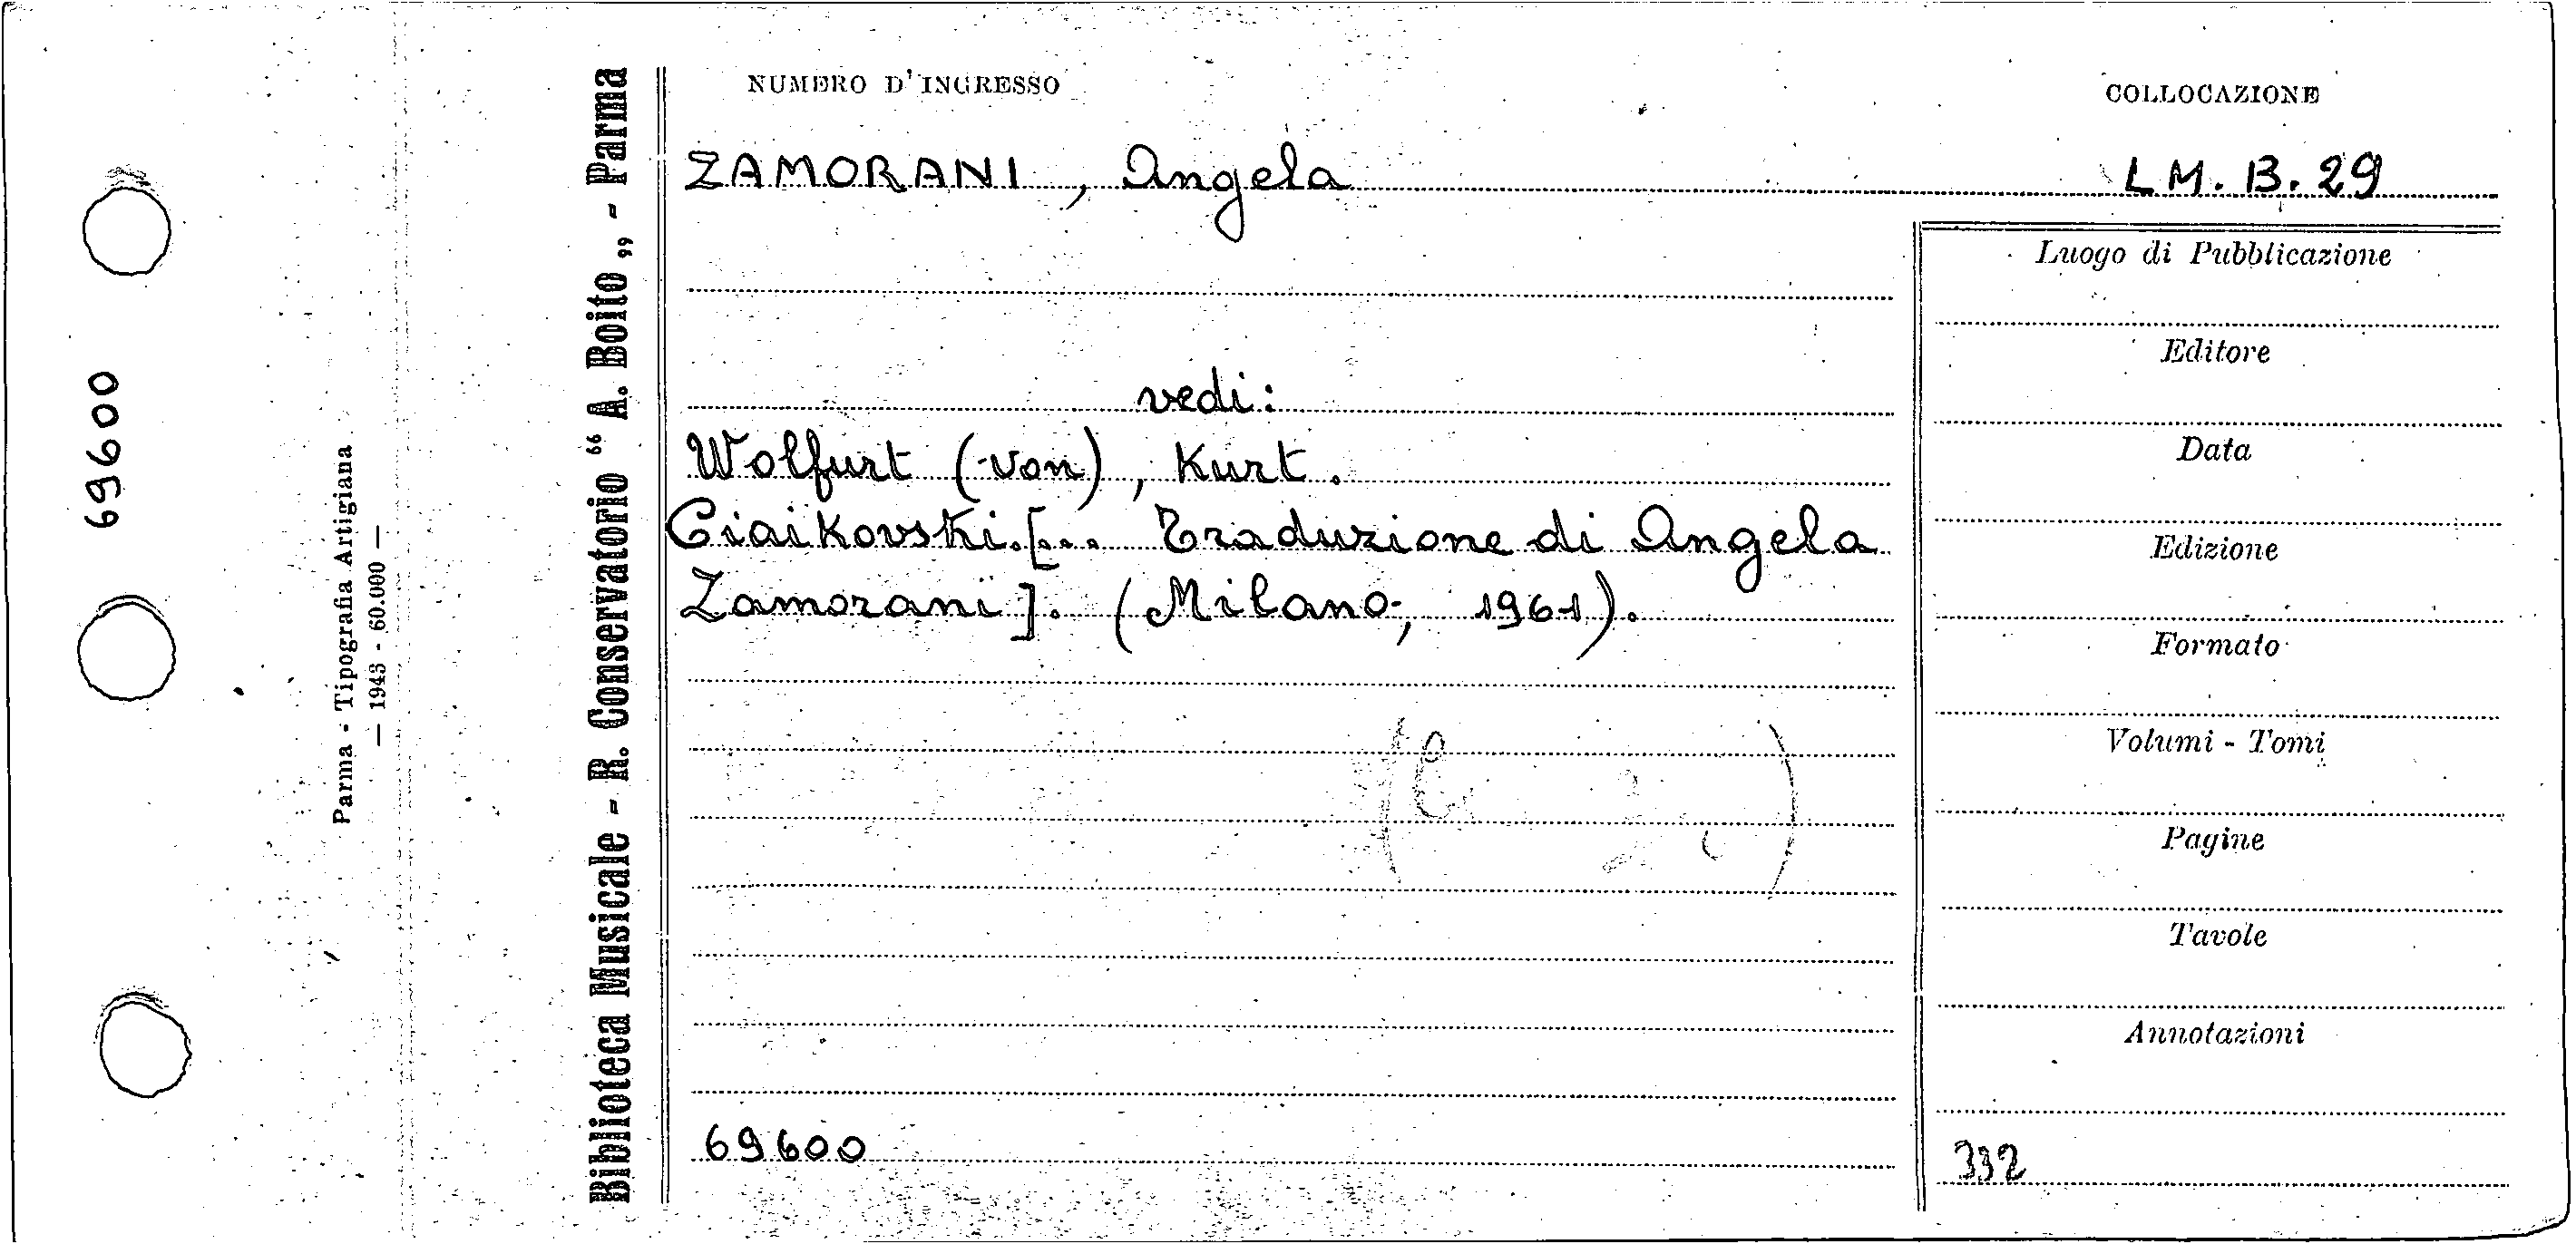 69600
Parma - Tipografia Artigiana
— 1943 - 60.000 —
Biblioteca Musicale - R. Conservatorio “ A. Boito „ - Parma
NUMERO D'INGRESSO
COLLOCAZIONE
ZAMORANI, Angela
LM. B. 29
vedi:
Wolfurt (von), Kurt.
Ciaikovski. [... Traduzione di Angela
Zamorani]. (Milano, 1961).
69600
Luogo di Pubblicazione
Editore
Data
Edizione
Formato
Volumi - Tomi
Pagine
Tavole
Annotazioni
332